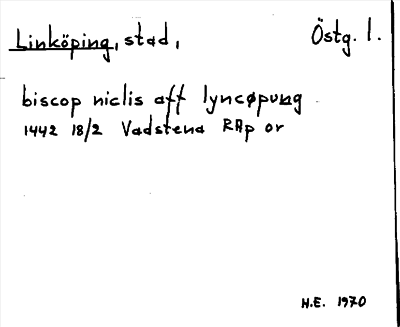 Linköping, stad, Östg. l.
biscop niclis aff lyncøpung
1442 18/2 Vadstena RAp or
H.E. 1970